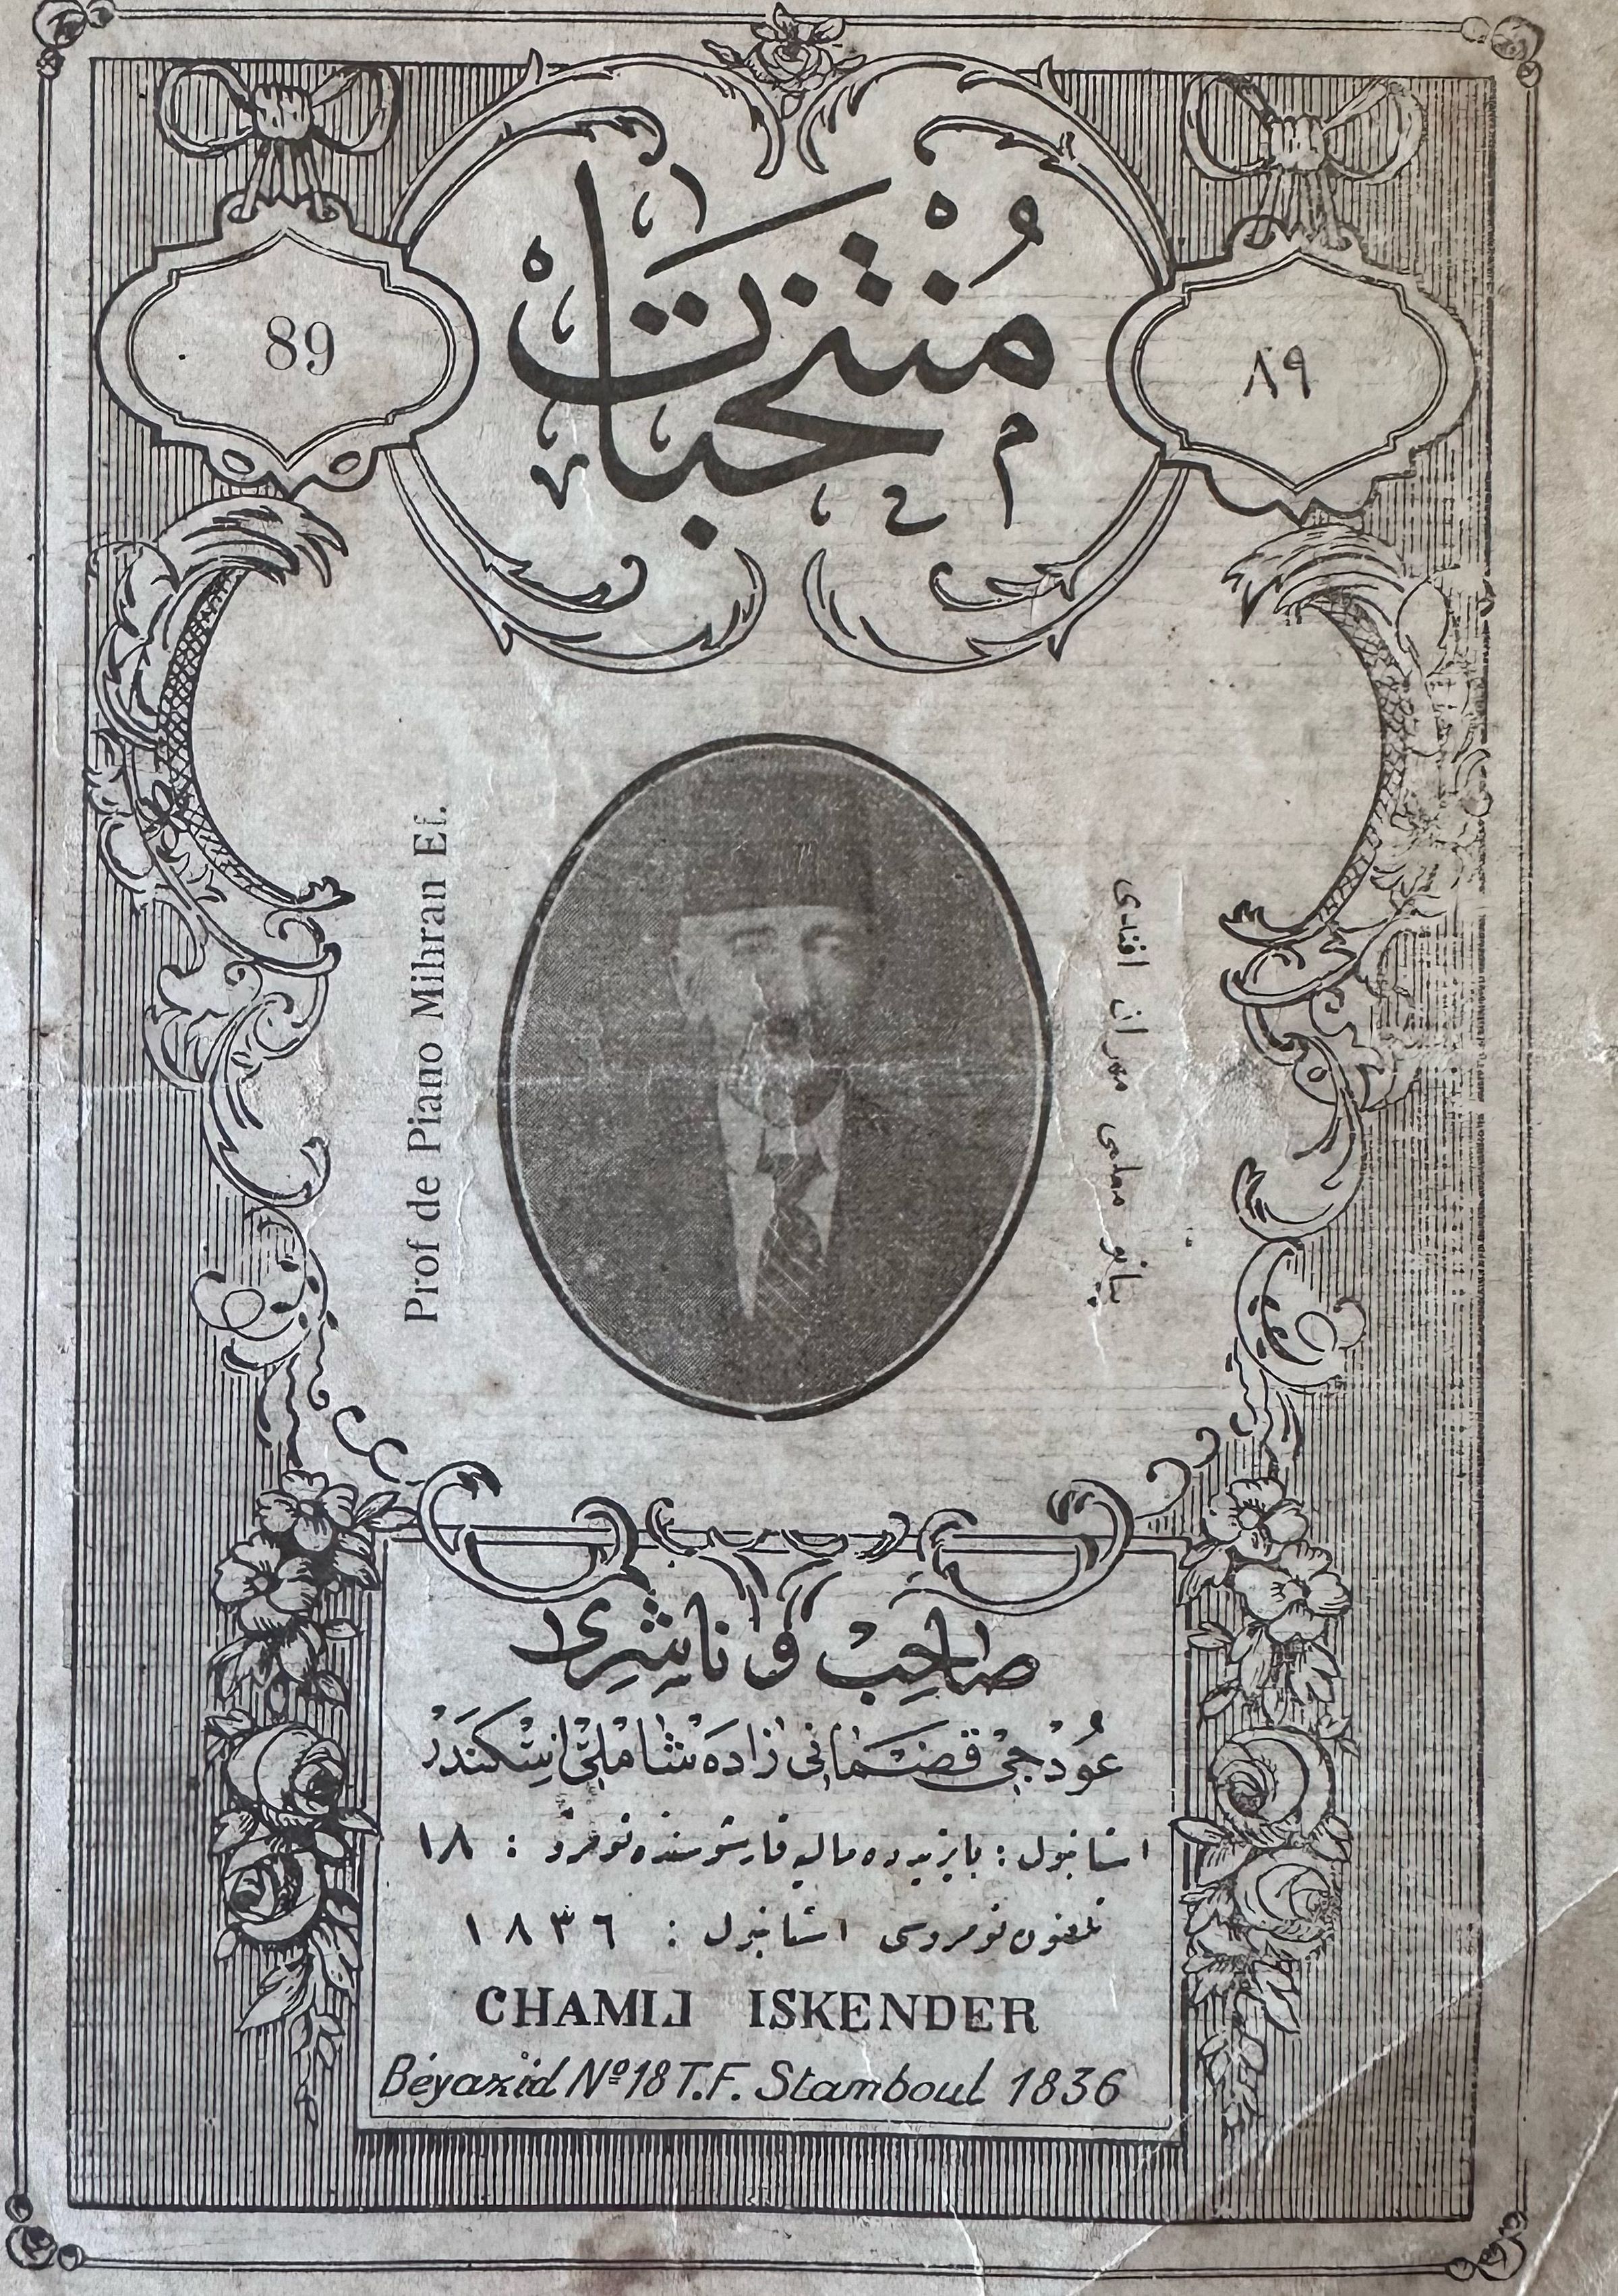 مُنتخبات
89
٨٩
Prof de Piano Mihran Ef.
پیانو معلمی مهران افندی
صاحب و ناشری
عودجی قضمانی زاده شاملی اسکندر
استانبول : بایزیدده مالیه قارشوسنده نومرو : ١٨
تلفون نومروسی استانبول : ١٨٣٦
CHAMLI ISKENDER
Béyazid Nº 18 T.F. Stamboul 1836